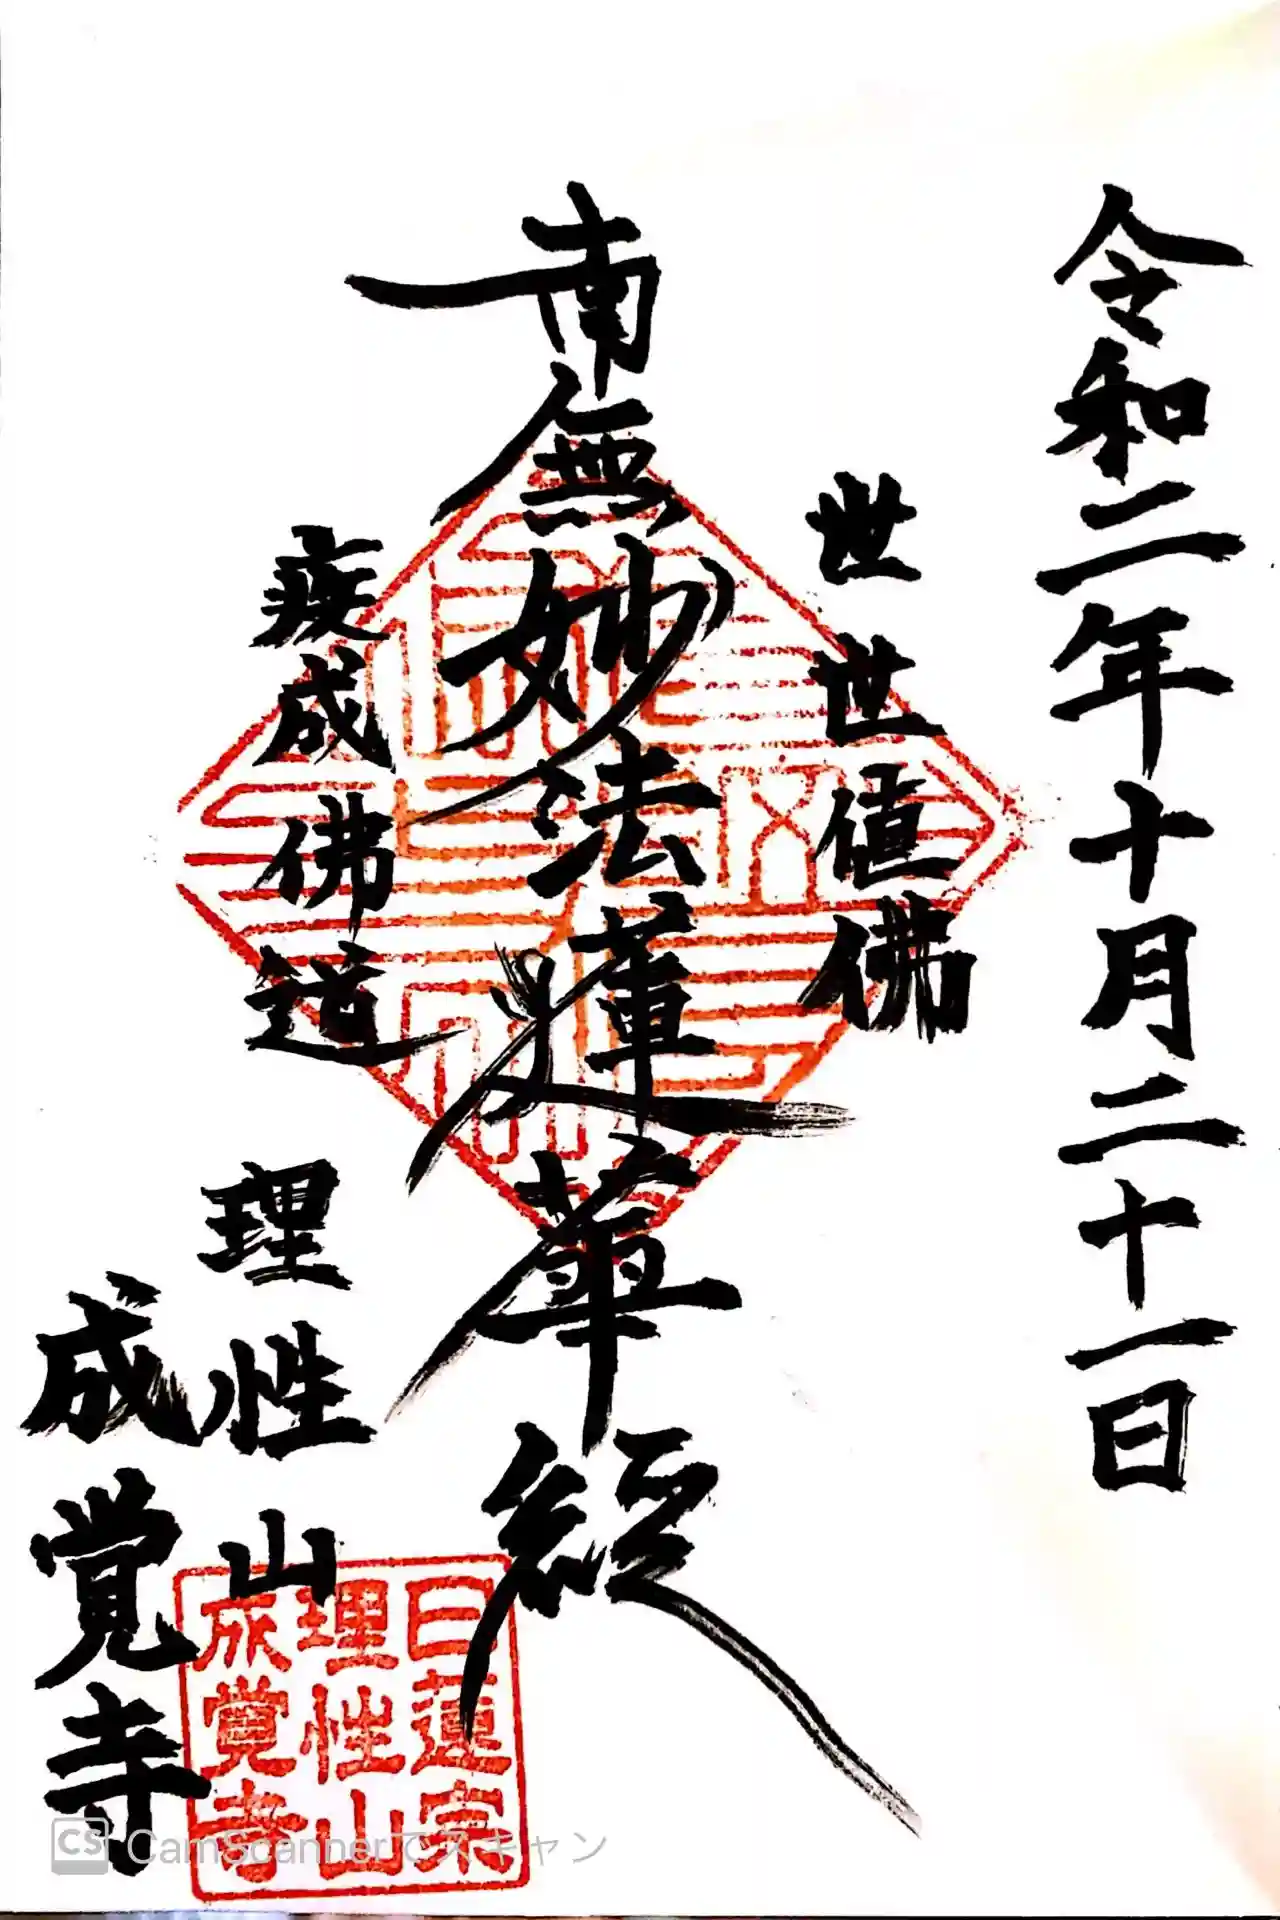 令和二年十月二十一日
世世値佛
南無妙法蓮華経
疾成佛道
理性山
成覚寺
日蓮宗
理性山
成覚寺
CS CamScannerでスキャン